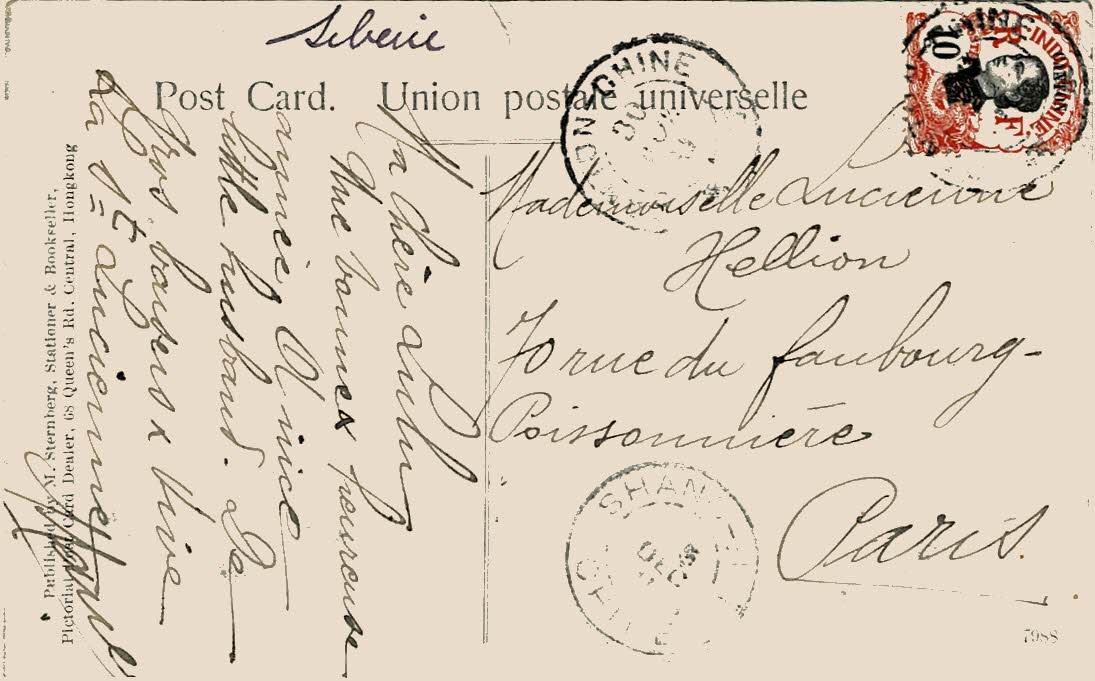 Siberie
Post Card. Union postale universelle
INDOCHINE
10
R F
CHINE
30
Mademoiselle Lucienne
Hellion
70 rue du faubourg-
Poissonnière
Paris.
SHANGHAI
DEC
CHINE
7988
chère
Une bonne & heureuse
année. A nice
little husband. De
Gros baisers & Vive
La St Lucienne
Published by M. Sternberg, Stationer & Bookseller,
Pictorial Post Card Dealer, 68 Queen's Rd. Central, Hongkong